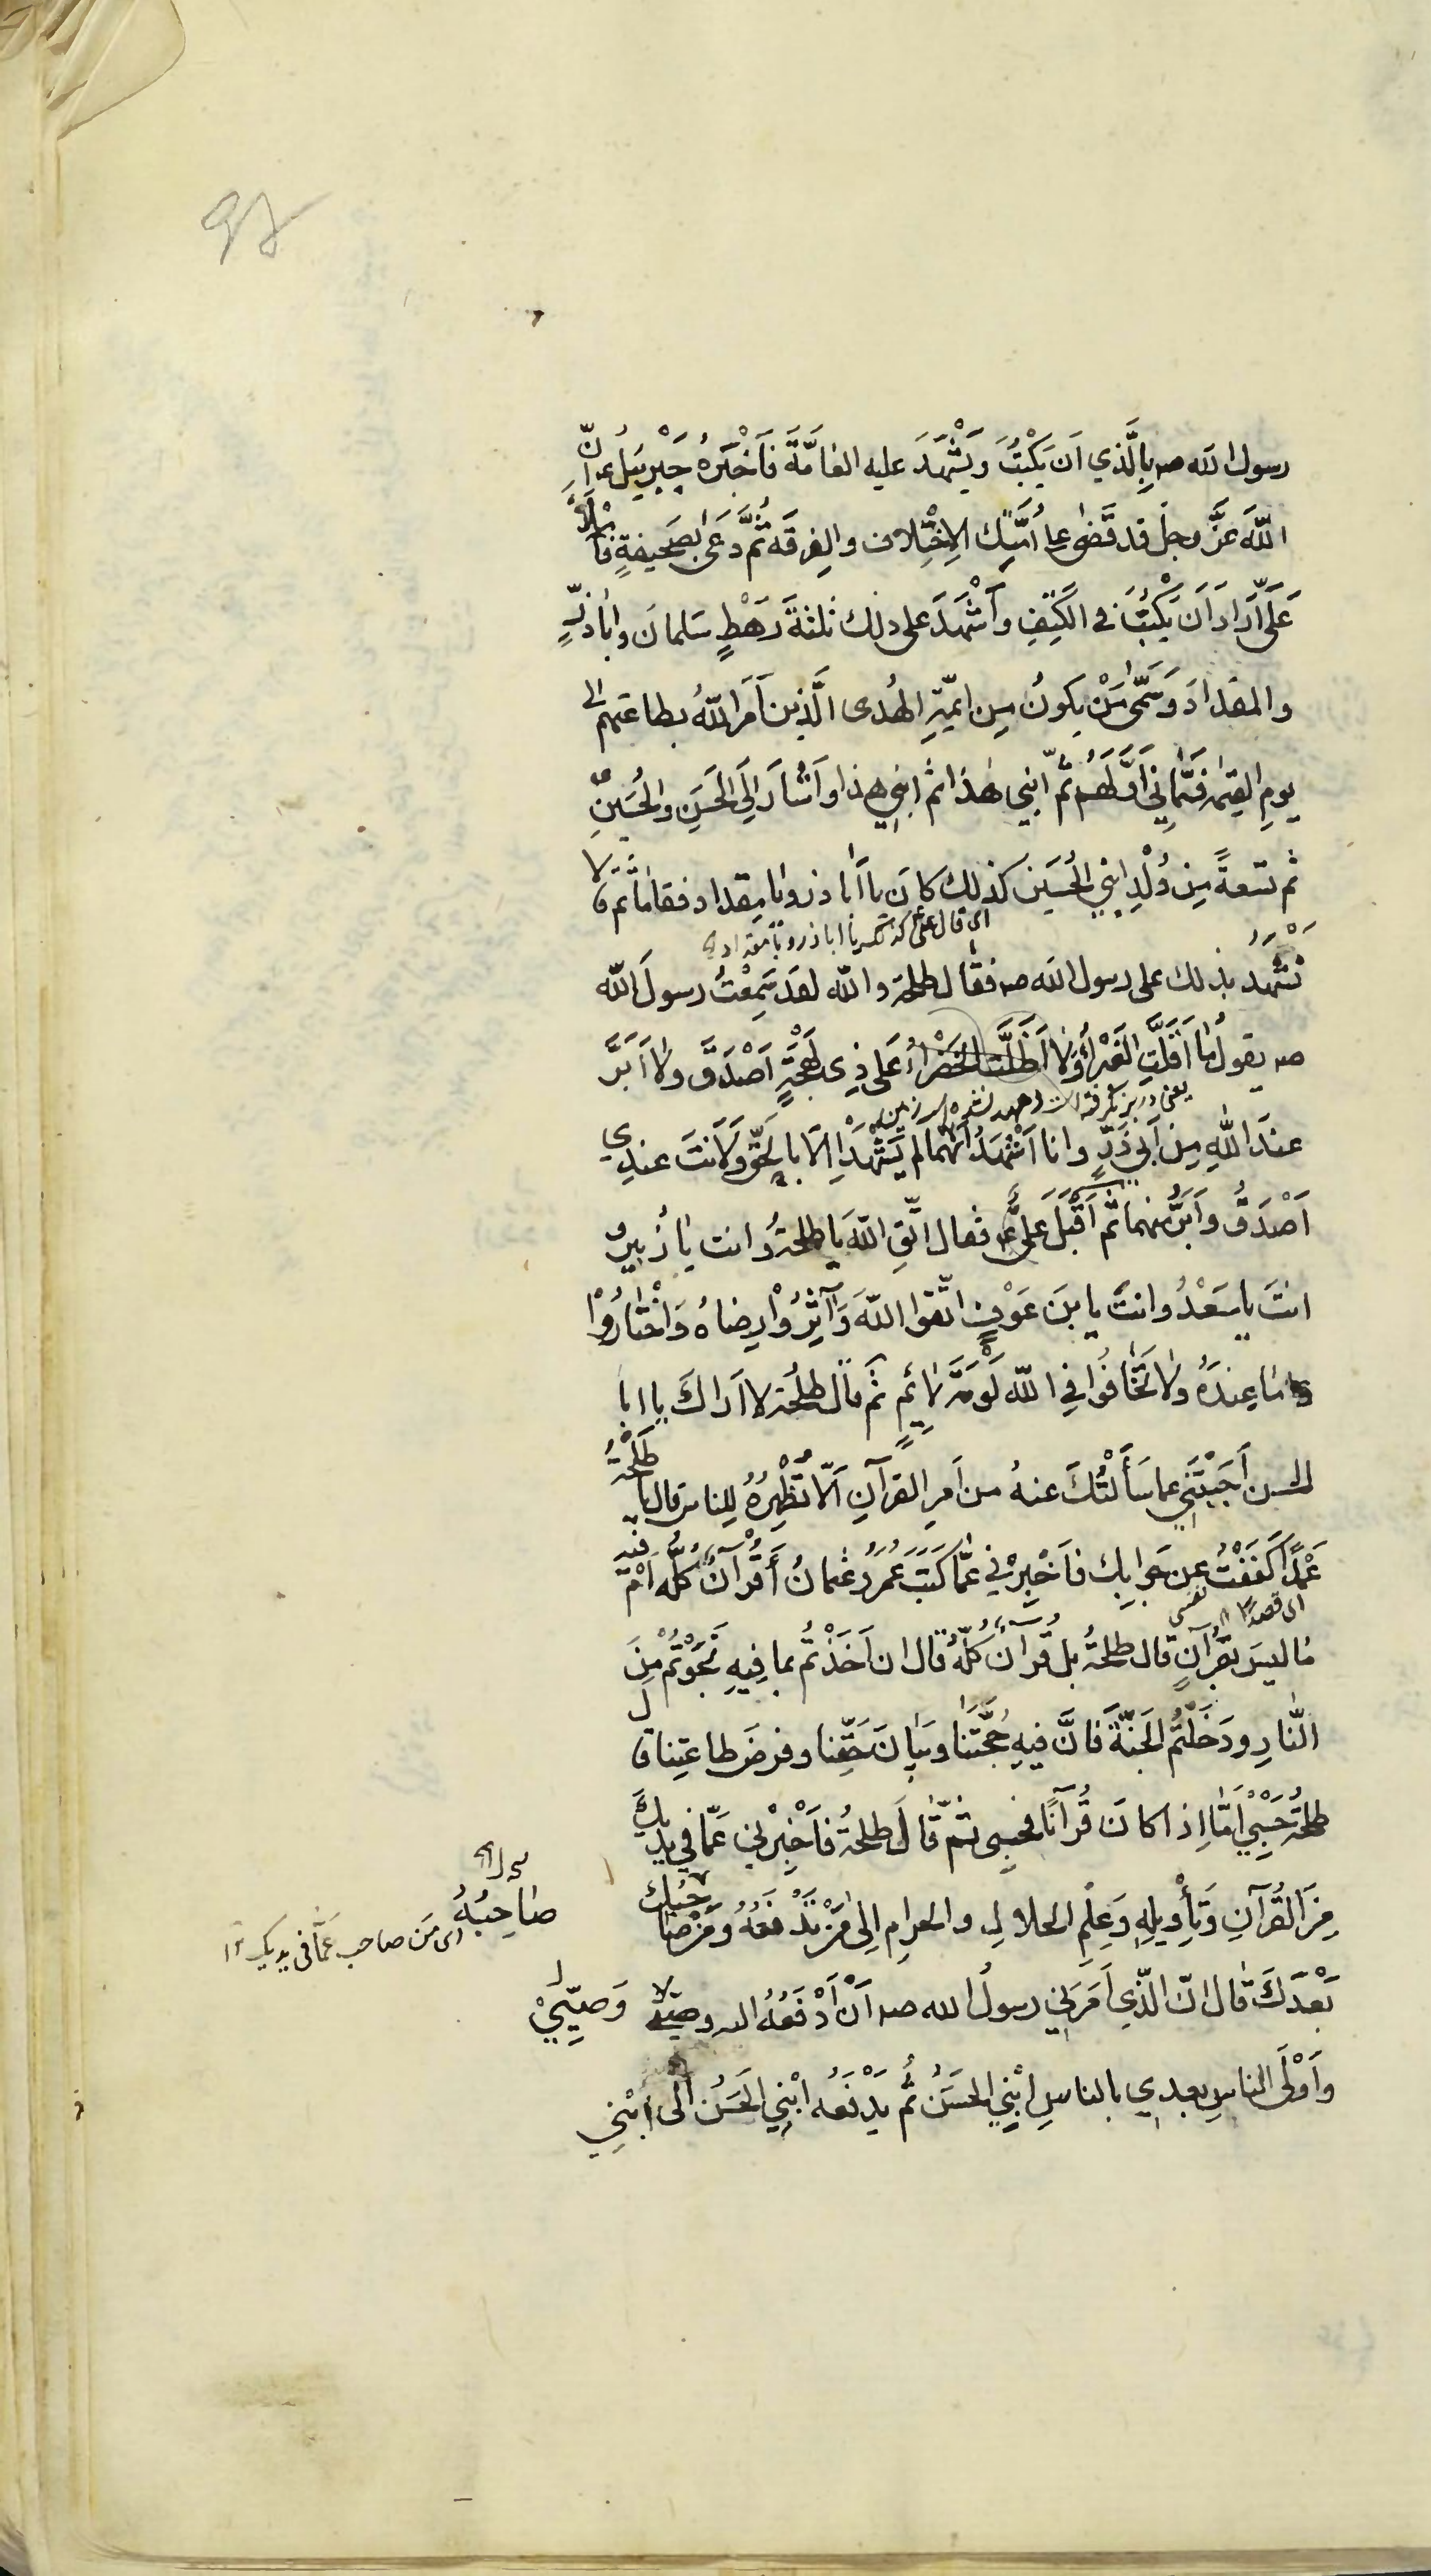 رسول الله صه بِالَّذي اَن يَكْتُبَ ويَشْهَدَ عليه العٰامَّةَ فَاَخْبَرَهُ جَبْرَئيلُ ع اَنَّ
اللّٰهَ عَزَّ وجلّ قد قَضىٰ على اُمَّتِكَ الاِخْتِلاف والفِرقَة ثُمَّ دَعَىٰ بِصَحيفَةٍ فَاَمْلَأَ
عَلَيَّ مٰا اَرٰادَ اَن يَكْتُبَ في الكَتِفِ واَشْهَدَ على ذلك ثلثةَ رَهْطٍ سَلمانَ واباذَرٍّ
والمقدادَ وَسَمّىٰ مَنْ يكونُ مِن ائِمَّةِ الهُدى الَّذين اَمَرَ اللّٰهُ بطاعتهم الى
يومِ القيمة فَسَمّٰاني اَوَّلَهُم ثمّ ابْني هٰذا ثم ابني هذا واَشٰارَ اِلَى الحَسَنِ والحُسَينِ
ثم تسعةً مِن وُلْدِ ابْني الحُسَين كذلك كان يا اَبا ذر ويا مقداد فقاما ثم قالا
اى قال على كذلك يا اباذر ويا مقداد
نَشْهَدُ بذلك على رسول الله صه فقٰال طلحة والله لقد سَمِعْتُ رسولَ الله
صه يقولُ مٰا اَقَلَّتِ الغَبْرٰاءُ وَلاٰ اَظَلَّتِ الخَضْرٰاءُ عَلى ذِي لَهْجَةٍ اَصْدَقَ ولاٰ اَبَرَّ
عندَ اللّٰهِ مِن اَبي ذَرٍّ وانا اَشْهَدُ اَنَّهُمٰا لم يَشْهَدٰا اِلاّٰ بِالحَقِّ ولَاَنتَ عندي
اَصْدَقُ واَبَرُّ منهما ثمّ اَقْبَلَ عَلِيٌّ ع فقال اتَّقِ اللّٰهَ يا طلحةُ وانت يا زُبير و
انتَ يا سَعْدُ وانتَ يا بنَ عَوْفٍ اتّقوا اللّٰهَ وَآثِرُوْا رِضاهُ وَاخْتٰارُوْا
مٰا عِندَهُ ولاٰ تَخٰافُوا فِي اللّٰه لَوْمَةَ لاٰئِمٍ ثمّ قال طلحة لا اَراكَ يا ابا
الحسن اَجَبْتَني عما سَأَلْتُكَ عنهُ من اَمرِ القرآنِ اَلاّ تُظْهِرُهُ لِلناس قال يا طَلْحَةُ
عَمْدًا كَفَفْتُ عن جَوابِك فَاَخْبِرْني عَمّٰا كَتَبَ عُمَرُ وعُثمانُ أَقُرْآنٌ كلُّه اَمْ فيه
اى قصدًا نفسى
مٰا ليسَ بقُرآنٍ قال طلحةُ بل قُرآنٌ كلُّهُ قال ان اَخَذْتُم بما فيهِ نَجَوْتُم مِنَ
النّٰارِ ودَخَلْتُم الجَنَّةَ فَاِنَّ فيهِ حُجَّتَنٰا وبَيٰانَ حَقِّنا وفرضَ طاعتِنا قال
طلحةُ حَسْبي اَمّٰا اِذا كانَ قُرآنًا فحسبى ثمّ قٰالَ طلحةُ فاَخْبِرْني عَمّا في يَدَيْكَ
مِنَ القُرآنِ وتَأْويلِهِ وَعِلْمِ الحلالِ والحرامِ اِلىٰ مَنْ تَدْفَعُهُ ومَنْ صٰاحِبُك
صٰاحِبُهُ
اى من صاحب عَمّا فى يديك
بَعْدَكَ قٰال اِنَّ الَّذِي اَمَرَني رسولُ الله صه اَنْ اَدْفَعَهُ اليه وصيّى
وَصِيّي
واَوْلَى الناسِ بعدي بالناسِ ابْني الحسَنُ ثمَّ يَدْفَعُه ابْني الحَسَنُ الى ابْني